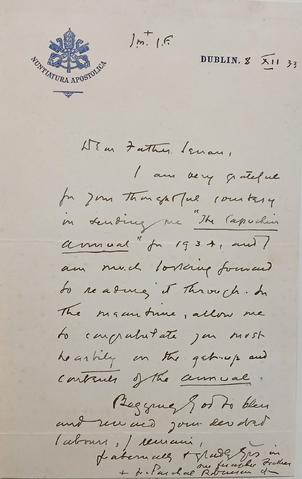 J.M.+ J.F.
NUNTIATURA APOSTOLICA
DUBLIN. 8 XII 33
Dear Father Senan,
I am very grateful
for your thoughtful courtesy
in sending me "The Capuchin
Annual" for 1934, and I
am much looking forward
to reading it through. In
the meantime, allow me
to congratulate you most
heartily on the get-up and
contents of the Annual.
Begging God to bless
and reward your devoted
labours, I remain,
fraternally & gladly yrs in
our Seraphic Father
+ fr. Paschal Robinson